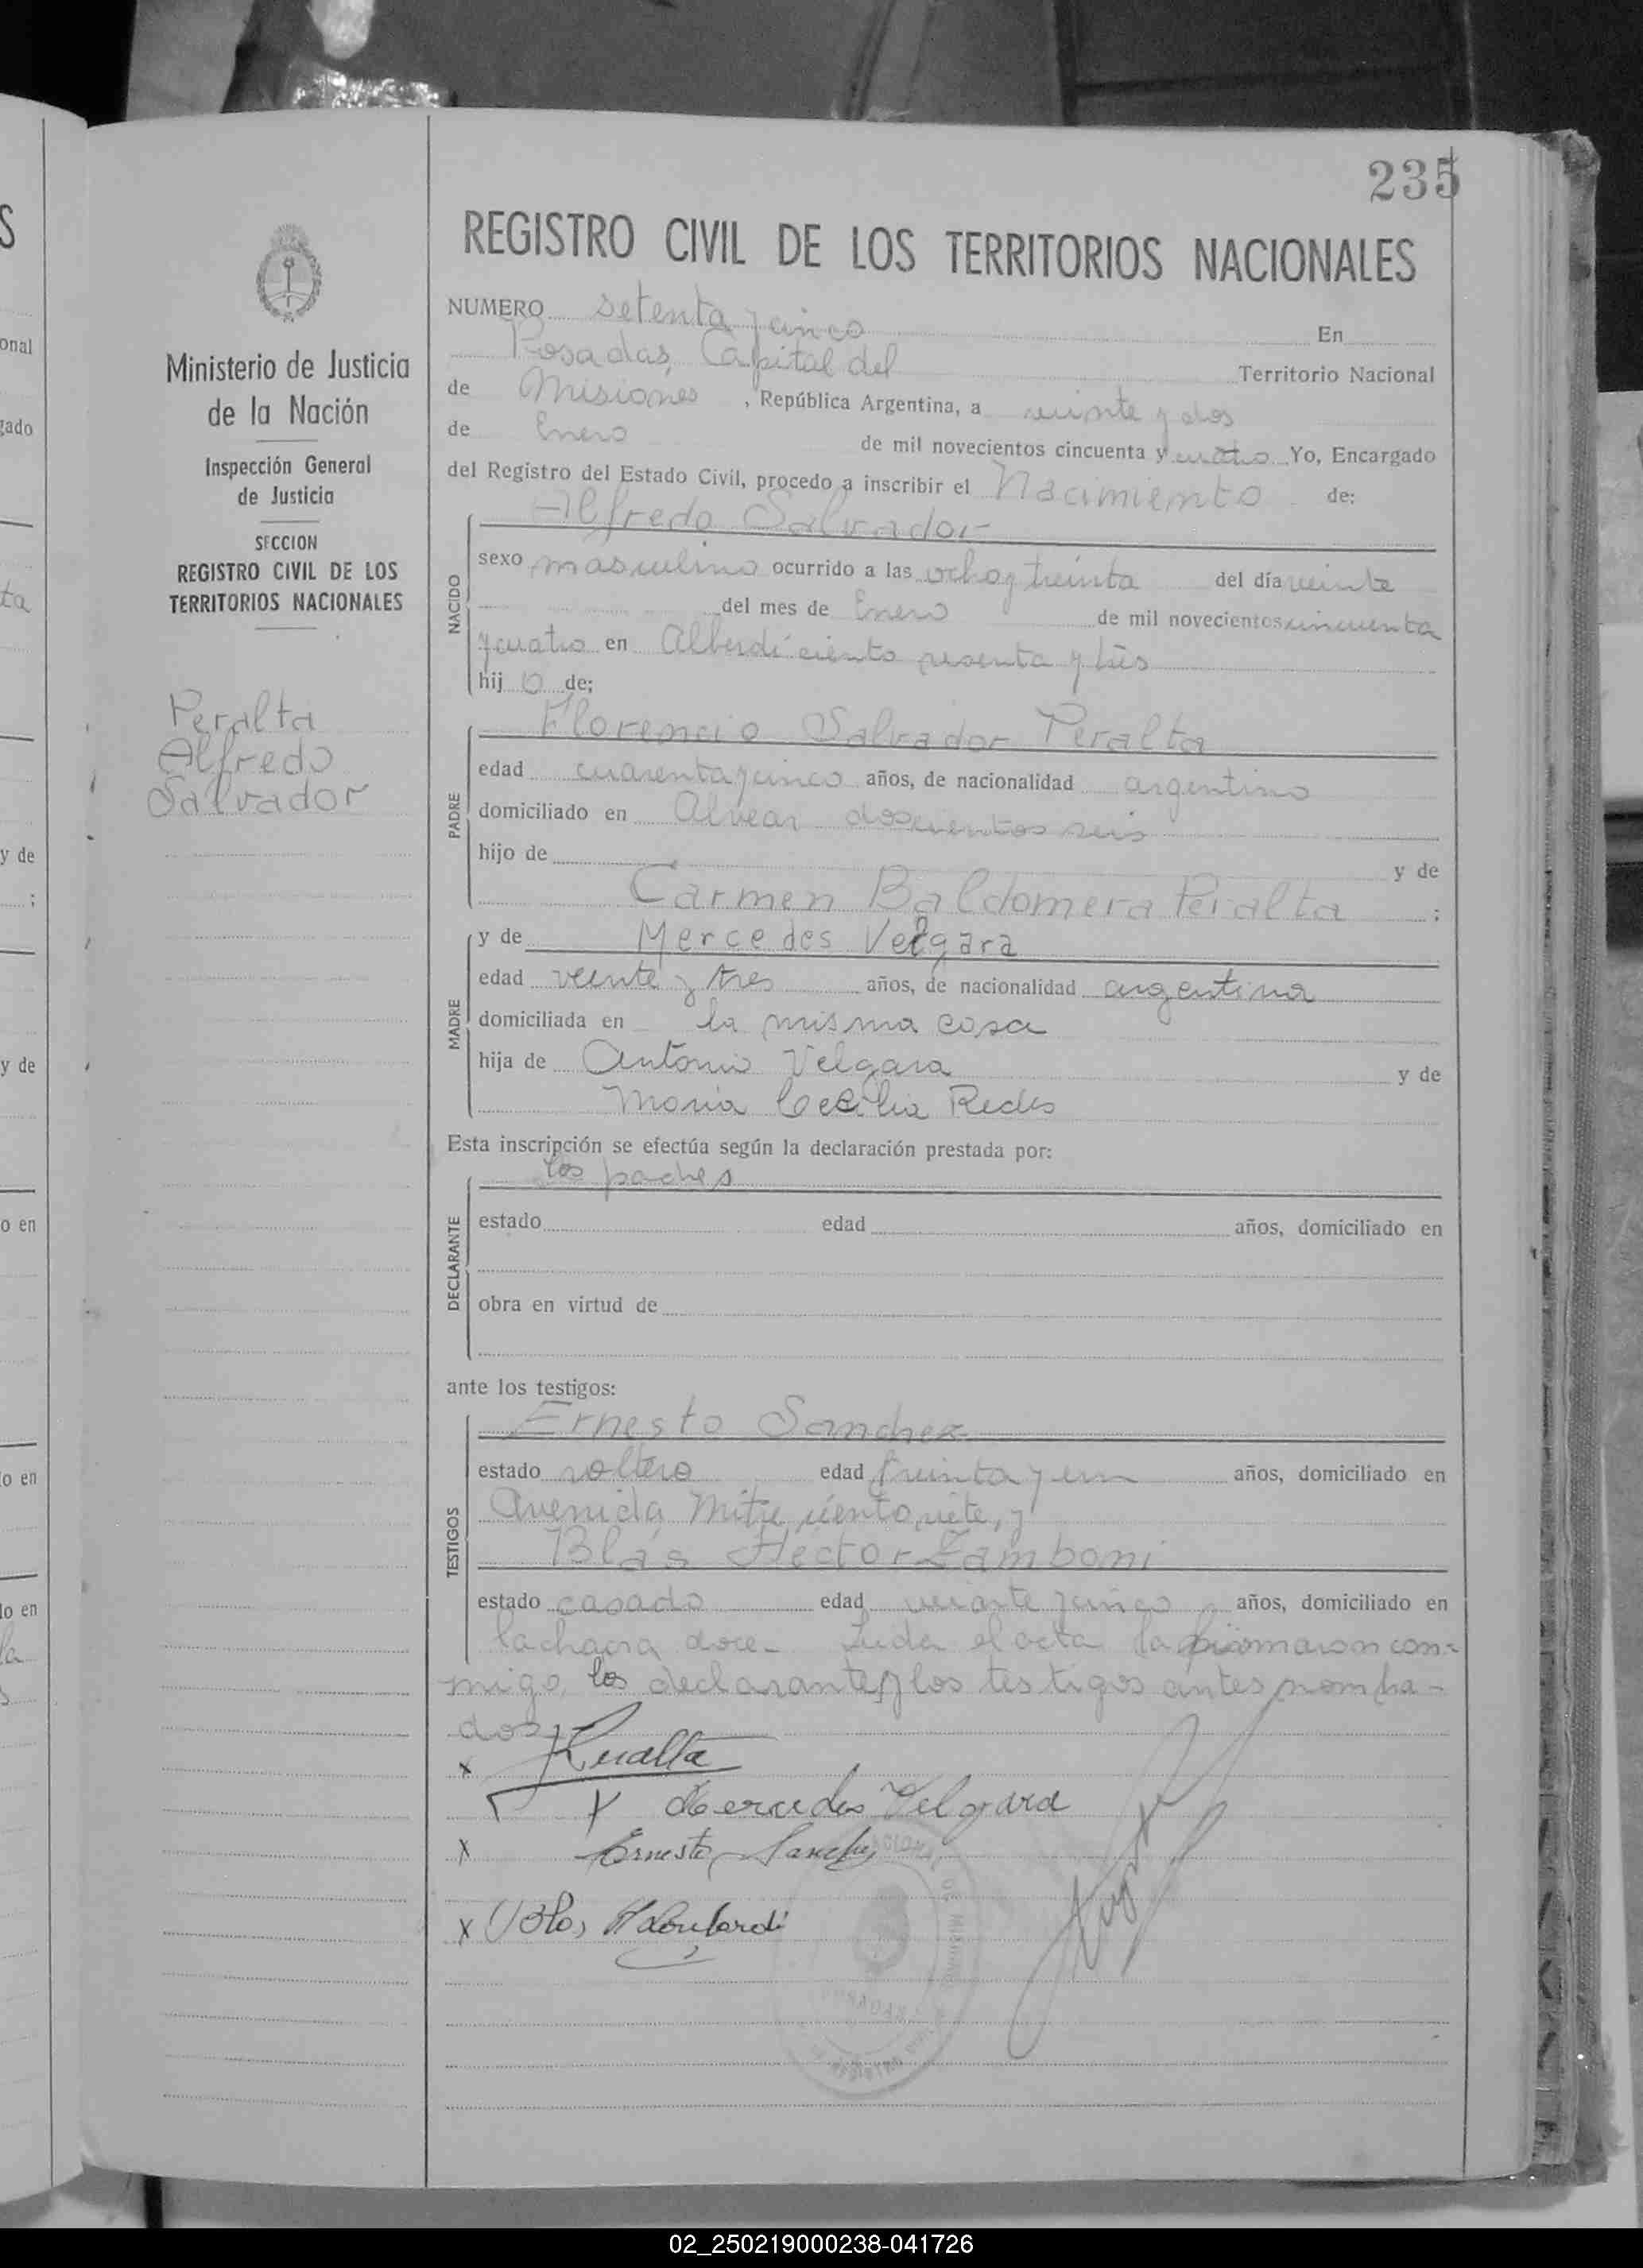 235
REGISTRO CIVIL DE LOS TERRITORIOS NACIONALES
NUMERO setenta y cinco En
Posadas, Capital del Territorio Nacional
de Misiones , República Argentina, a veinte y dos
de Enero de mil novecientos cincuenta y cuatro Yo, Encargado
del Registro del Estado Civil, procedo a inscribir el Nacimiento de:
Alfredo Salvador
NACIDO
sexo masculino ocurrido a las ocho y treinta del día veinte
del mes de Enero de mil novecientos cincuenta
y cuatro en Alberdi ciento sesenta y tres
hij o de;
PADRE
Florencio Salvador Peralta
edad cuarenta y cinco años, de nacionalidad argentino
domiciliado en Alvear doscientos seis
hijo de y de
Carmen Baldomera Peralta ;
MADRE
y de Mercedes Velgara
edad veinte y tres años, de nacionalidad argentina
domiciliada en la misma casa
hija de Antonio Velgara y de
Maria Cecilia Redes
Esta inscripción se efectúa según la declaración prestada por:
los padres
DECLARANTE
estado edad años, domiciliado en
obra en virtud de
ante los testigos:
TESTIGOS
Ernesto Sanchez
estado soltero edad treinta y un años, domiciliado en
Avenida Mitre ciento siete, y
Blás Héctor Zamboni
estado casado edad veinte y cinco años, domiciliado en
la chacra doce- Leida el acta la firmaron con-
migo, los declarantes y los testigos antes nombra-
dos
x Peralta
x Mercedes Velgara
x Ernesto Sanchez
x Blas
Ministerio de Justicia
de la Nación
Inspección General
de Justicia
SECCION
REGISTRO CIVIL DE LOS
TERRITORIOS NACIONALES
Peralta
Alfredo
Salvador
S
onal
gado
ta
y de
;
y de
o en
o en
lo en
la
s
02_250219000238-041726